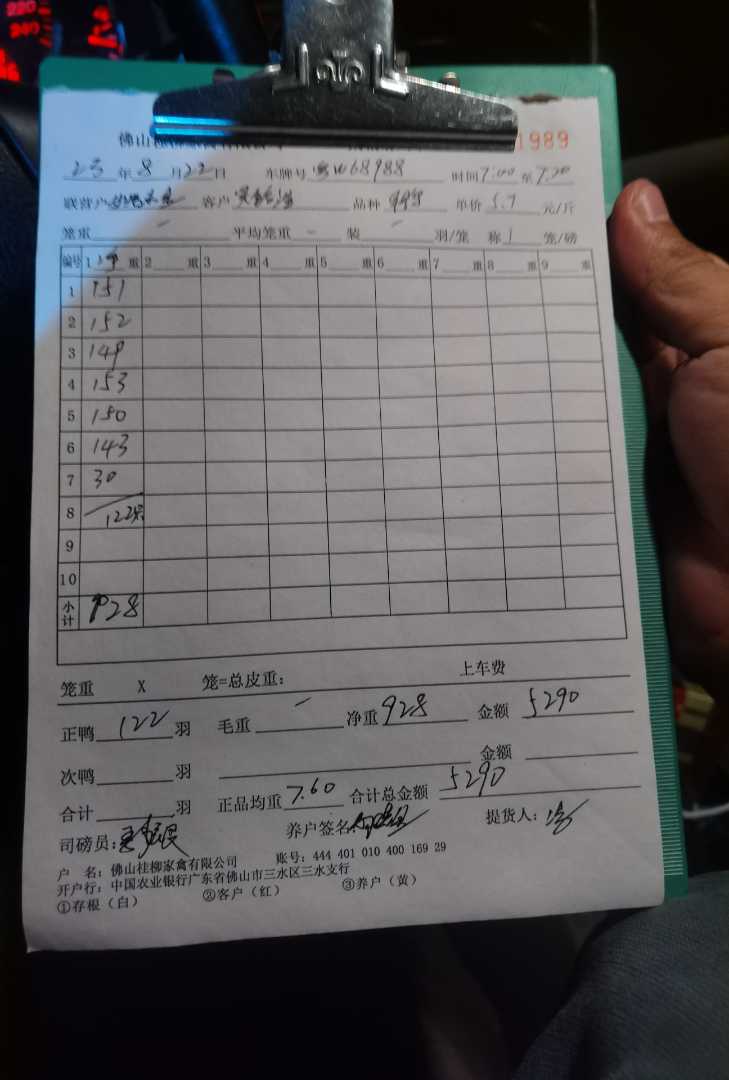 220
240
佛山 1989
23 年 8 月 22 日 车牌号 W68988 时间 7:00 至 7:20
联营户 客户 品种 单价 5.7 元/斤
笼重 - 平均笼重 - 装 - 羽/笼 称 1 笼/磅
编号 1 净 重 2 重 3 重 4 重 5 重 6 重 7 重 8 重 9 重
1 151
2 152
3 149
4 153
5 150
6 143
7 30
8 122只
9
10
小计 928
笼重 X 笼=总皮重: 上车费
正鸭 122 羽 毛重 - 净重 928 金额 5290
次鸭 羽 金额
合计 羽 正品均重 7.60 合计总金额 5290
司磅员: 养户签名 提货人:
户 名: 佛山桂柳家禽有限公司 账号: 444 401 010 400 169 29
开户行: 中国农业银行广东省佛山市三水区三水支行
①存根(白) ②客户(红) ③养户(黄)